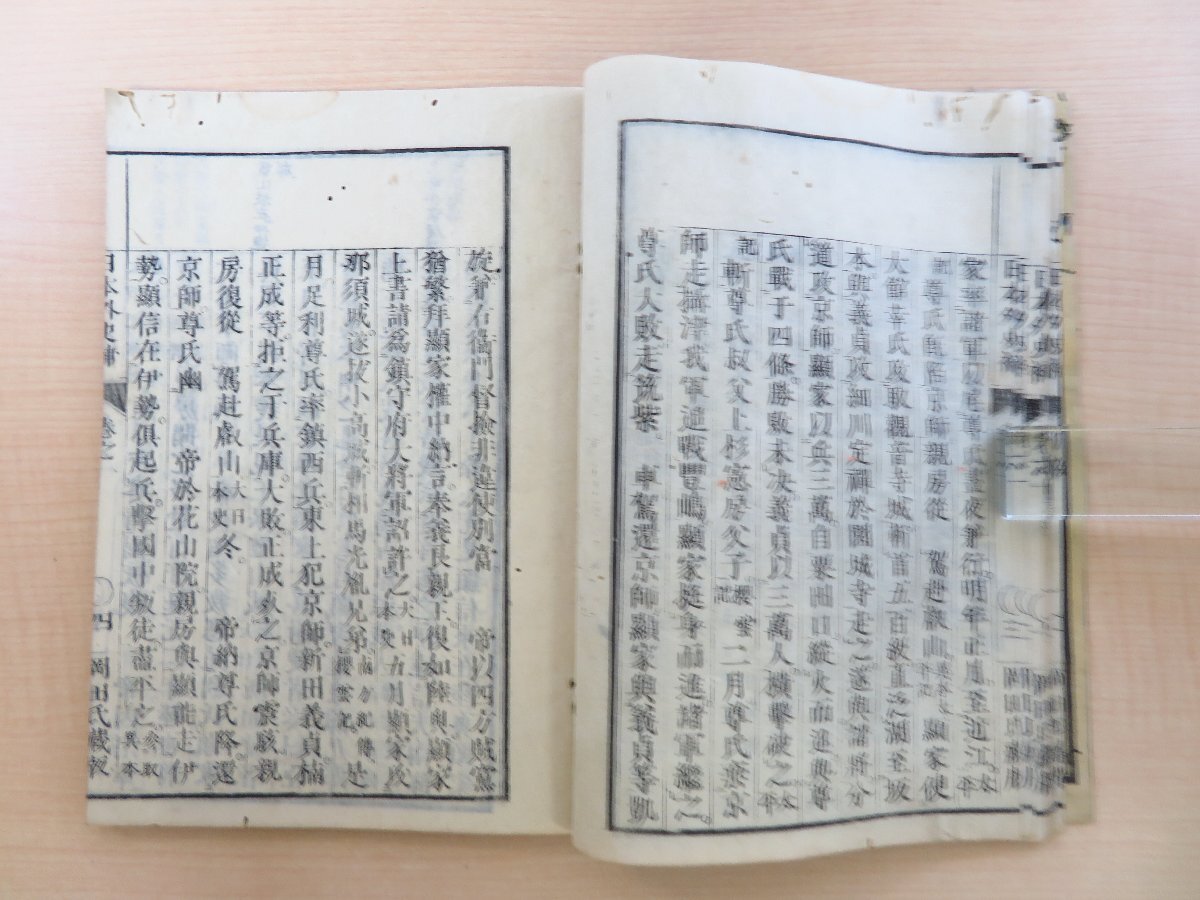 家率諸軍及尊氏晝夜兼行明年正月至近江
記尊氏既陷京師親房從 駕赴叡山 顯家使
大館幸氏攻取觀音寺城斬首五百級直泛湖至坂
本與義貞攻細川定禪於園城寺走之遂與諸將分
道攻京師顯家以兵三萬自粟田口縱火而進與尊
氏戰于四條勝敗未決義貞以三萬人橫擊破之
記斬尊氏叔父上杉憲房父子櫻雲記二月尊氏棄京
師走攝津我軍追戰豐嶋顯家挺身而進諸軍繼之
尊氏大敗走筑紫 車駕還京師顯家與義貞等凱
旋兼右衞門督檢非違使別當 帝以四方賊黨
猶繁拜顯家權中納言奉義良親王復如陸奧顯家
上書請爲鎭守府大將軍詔許之大日本史五月顯家攻
那須城遂拔小高城斬相馬光胤兄弟南方紀傳櫻雲記是
月足利尊氏率鎭西兵東上犯京師新田義貞楠
正成等拒之于兵庫大敗正成死之京師震駭親
房復從 駕赴叡山大日本史冬 帝納尊氏降還
京師尊氏幽 帝於花山院親房與顯能走伊
勢顯信在伊勢俱起兵擊國中敵徒盡平之參取異本
日本外史補 卷之一 四 岡田氏藏板